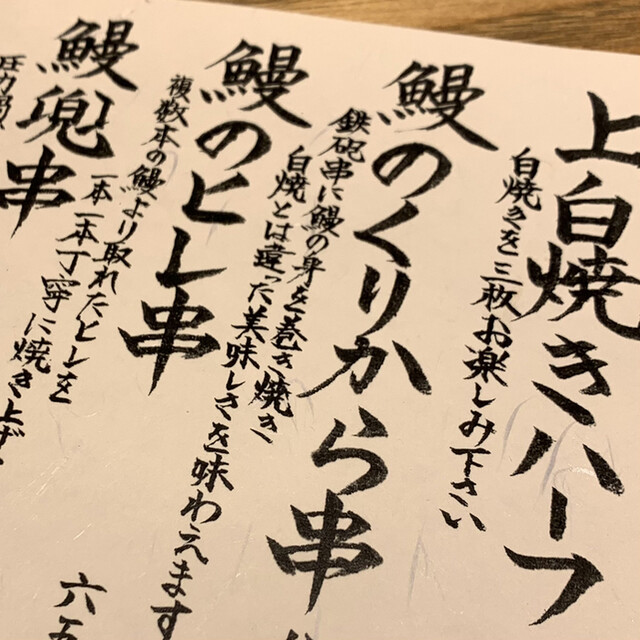 上白焼きハーフ
白焼きを三枚お楽しみ下さい
鰻のくりから串
鉄砲串に鰻の身を巻き焼き
白焼とは違った美味しさを味わえます
鰻のヒレ串
複数本の鰻より取れたヒレを
一本一本丁寧に焼き上げ
六五
鰻兜串